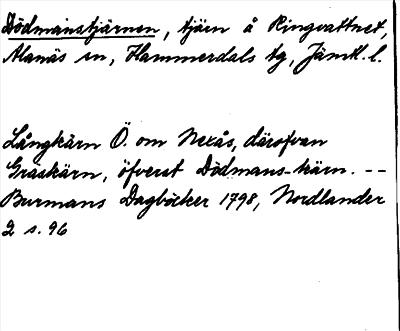 Dödmanstjärnen, tjärn å Ringvattnet,
Alanäs sn, Hammerdals tg, Jämtl. l.
Långkärn Ö. om Nexås, därofvan
Graskärn, öfverst Dödmans-kärn. --
Burmans Dagböcker 1798, Nordlander
2 s. 96